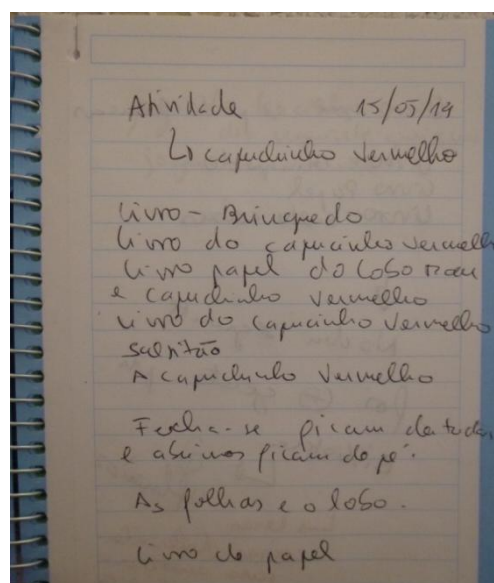 Atividade 15/05/19
↳ capuchinho vermelho
Livro - Brinquedo
livro do capucinho vermelh
livro papel do lobo mau
e capuchinho vermelho
livro do capucinho vermelho
saltitão
A capuchinho vermelho
Fecha-se ficam deitados
e abrimos ficam de pé.
As folhas e o lobo.
livro de papel